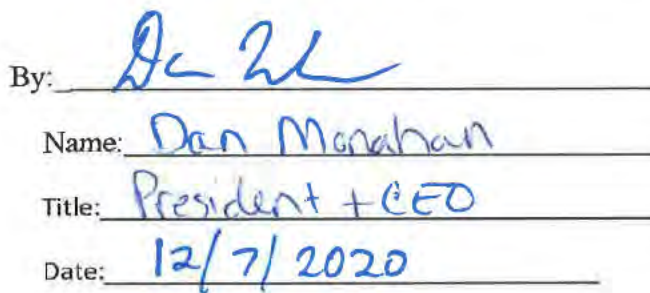 By:
Name: Dan Monahan
Title: President + CEO
Date: 12/7/2020